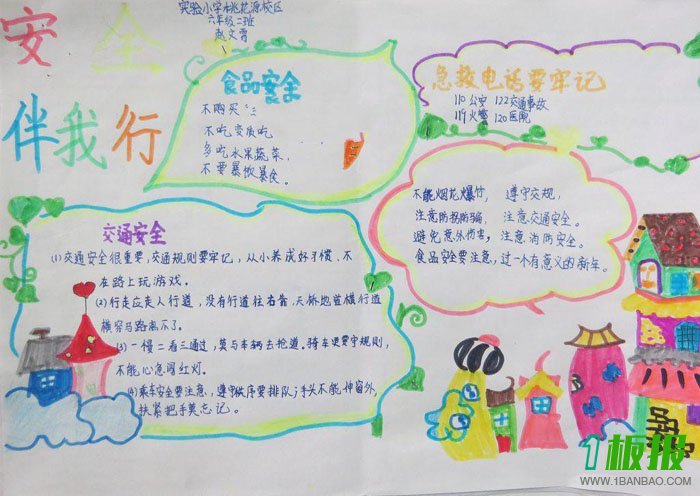 实验小学桃花源校区
六年级二班
赵文雪
安全
伴我行
食品安全
不购买"三
不吃变质吃
多吃水果蔬菜,
不要暴饮暴食。
急救电话要牢记
110 公安 122交通事故
119火警 120医院
不能烟花爆竹, 遵守交规,
注意防拐防骗, 注意交通安全。
避免意外伤害, 注意消防安全。
食品安全要注意, 过一个有意义的新年。
交通安全
(1)交通安全很重要,交通规则要牢记,从小养成好习惯,不
在路上玩游戏。
(2)行走应走人行道,没有行道往右靠,天桥地道横行道
横穿马路离不了。
(3)一慢二看三通过,莫与车辆去抢道。骑车更要守规则,
不能心急闯红灯。
(4)乘车安全要注意,遵守秩序要排队;手头不能伸窗外,
扶紧把手莫忘记。
1板报
WWW.1BANBAO.COM